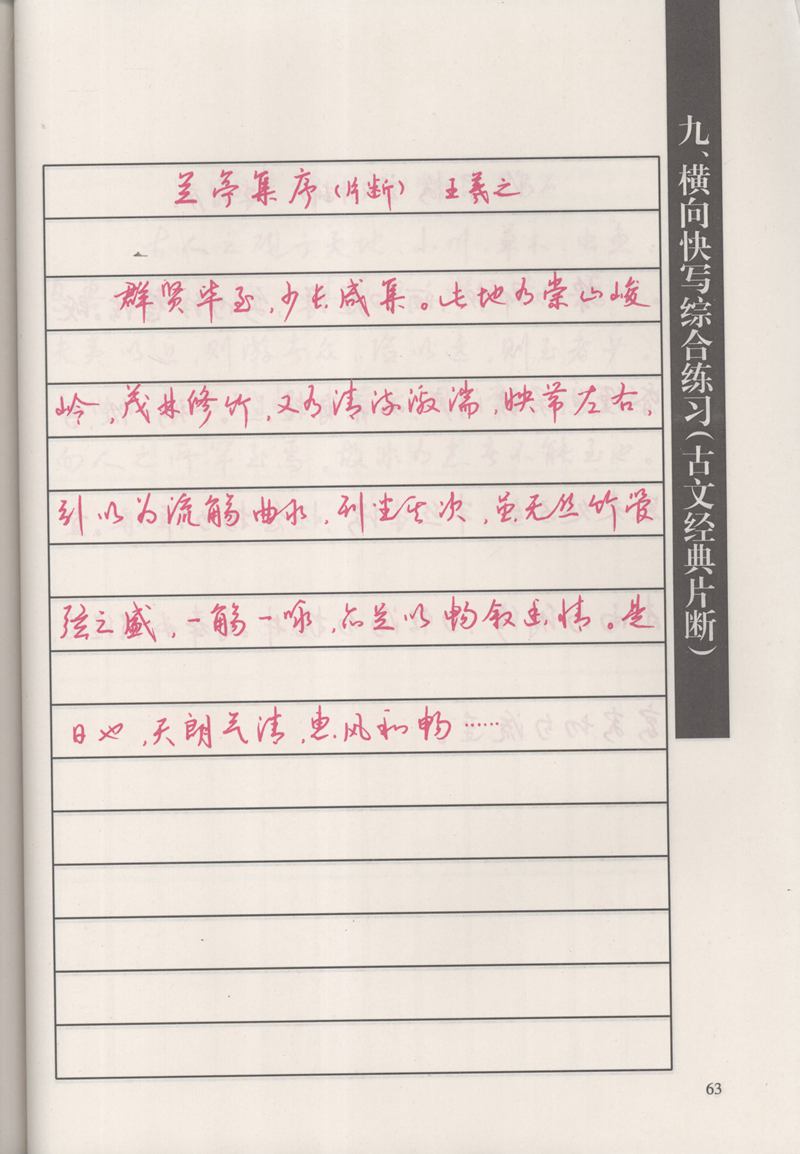 九、横向快写综合练习(古文经典片断)
兰亭集序(片断) 王羲之
群贤毕至,少长咸集。此地有崇山峻
岭,茂林修竹,又有清流激湍,映带左右,
引以为流觞曲水,列坐其次,虽无丝竹管
弦之盛,一觞一咏,亦足以畅叙幽情。是
日也,天朗气清,惠风和畅……
63